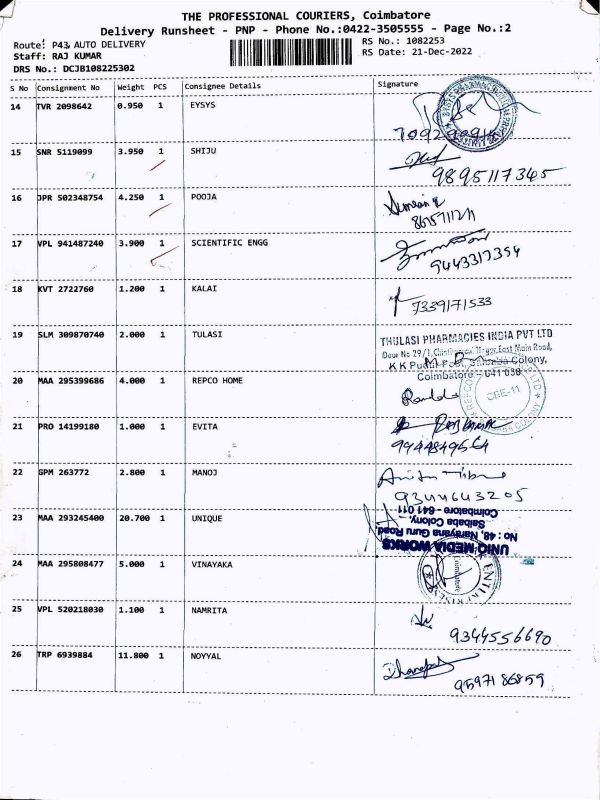 THE PROFESSIONAL COURIERS, Coimbatore
Delivery Runsheet - PNP - Phone No.:0422-3505555 - Page No.:2
Route: P43, AUTO DELIVERY
RS No.: 1082253
Staff: RAJ KUMAR
RS Date: 21-Dec-2022
DRS No.: DCJB108225302
S No Consignment No Weight PCS Consignee Details Signature
14 TVR 2098642 0.950 1 EYSYS
15 SNR 5119099 3.950 1 SHIJU
9895117345
16 JPR 502348754 4.250 1 POOJA
17 VPL 941487240 3.900 1 SCIENTIFIC ENGG
9443317394
18 KVT 2722760 1.200 1 KALAI
7339171533
19 SLM 309870740 2.000 1 TULASI
THULASI PHARMACIES INDIA PVT LTD
Door No 29/1, East Main Road,
K K Pudur Post, Saibaba Colony,
Coimbatore - 641 038
20 MAA 295399686 4.000 1 REPCO HOME
CBE-11
21 PRO 14199180 1.000 1 EVITA
9944849564
22 GPM 263772 2.800 1 MANOJ
9344643205
23 MAA 293245400 20.700 1 UNIQUE
UNIQ MEDIA WORKS
No : 48, Narayana Guru Road,
Saibaba Colony,
Coimbatore - 641 011
24 MAA 295808477 5.000 1 VINAYAKA
25 VPL 520218030 1.100 1 NAMRITA
9344556690
26 TRP 6939884 11.800 1 NOYYAL
9597186859